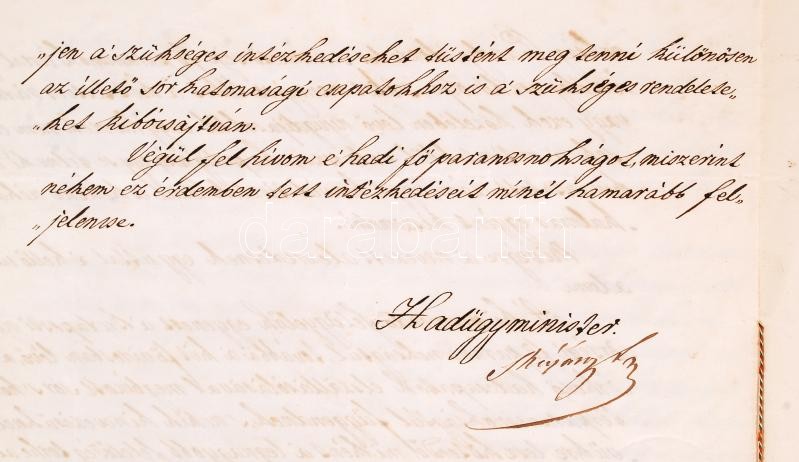 „jen a' szükséges intézkedéseket tüstént meg tenni különösen
az illető sorkatonasági csapatokhoz is a' szükséges rendelete„
„ket kibócsájtván.
Végül fel hívom e' hadi fő parancsnokságot, miszerint
nékem ez érdemben tett intézkedéseit minél hamarább fel„
„jelentse.
darabanth
Hadügyminister.